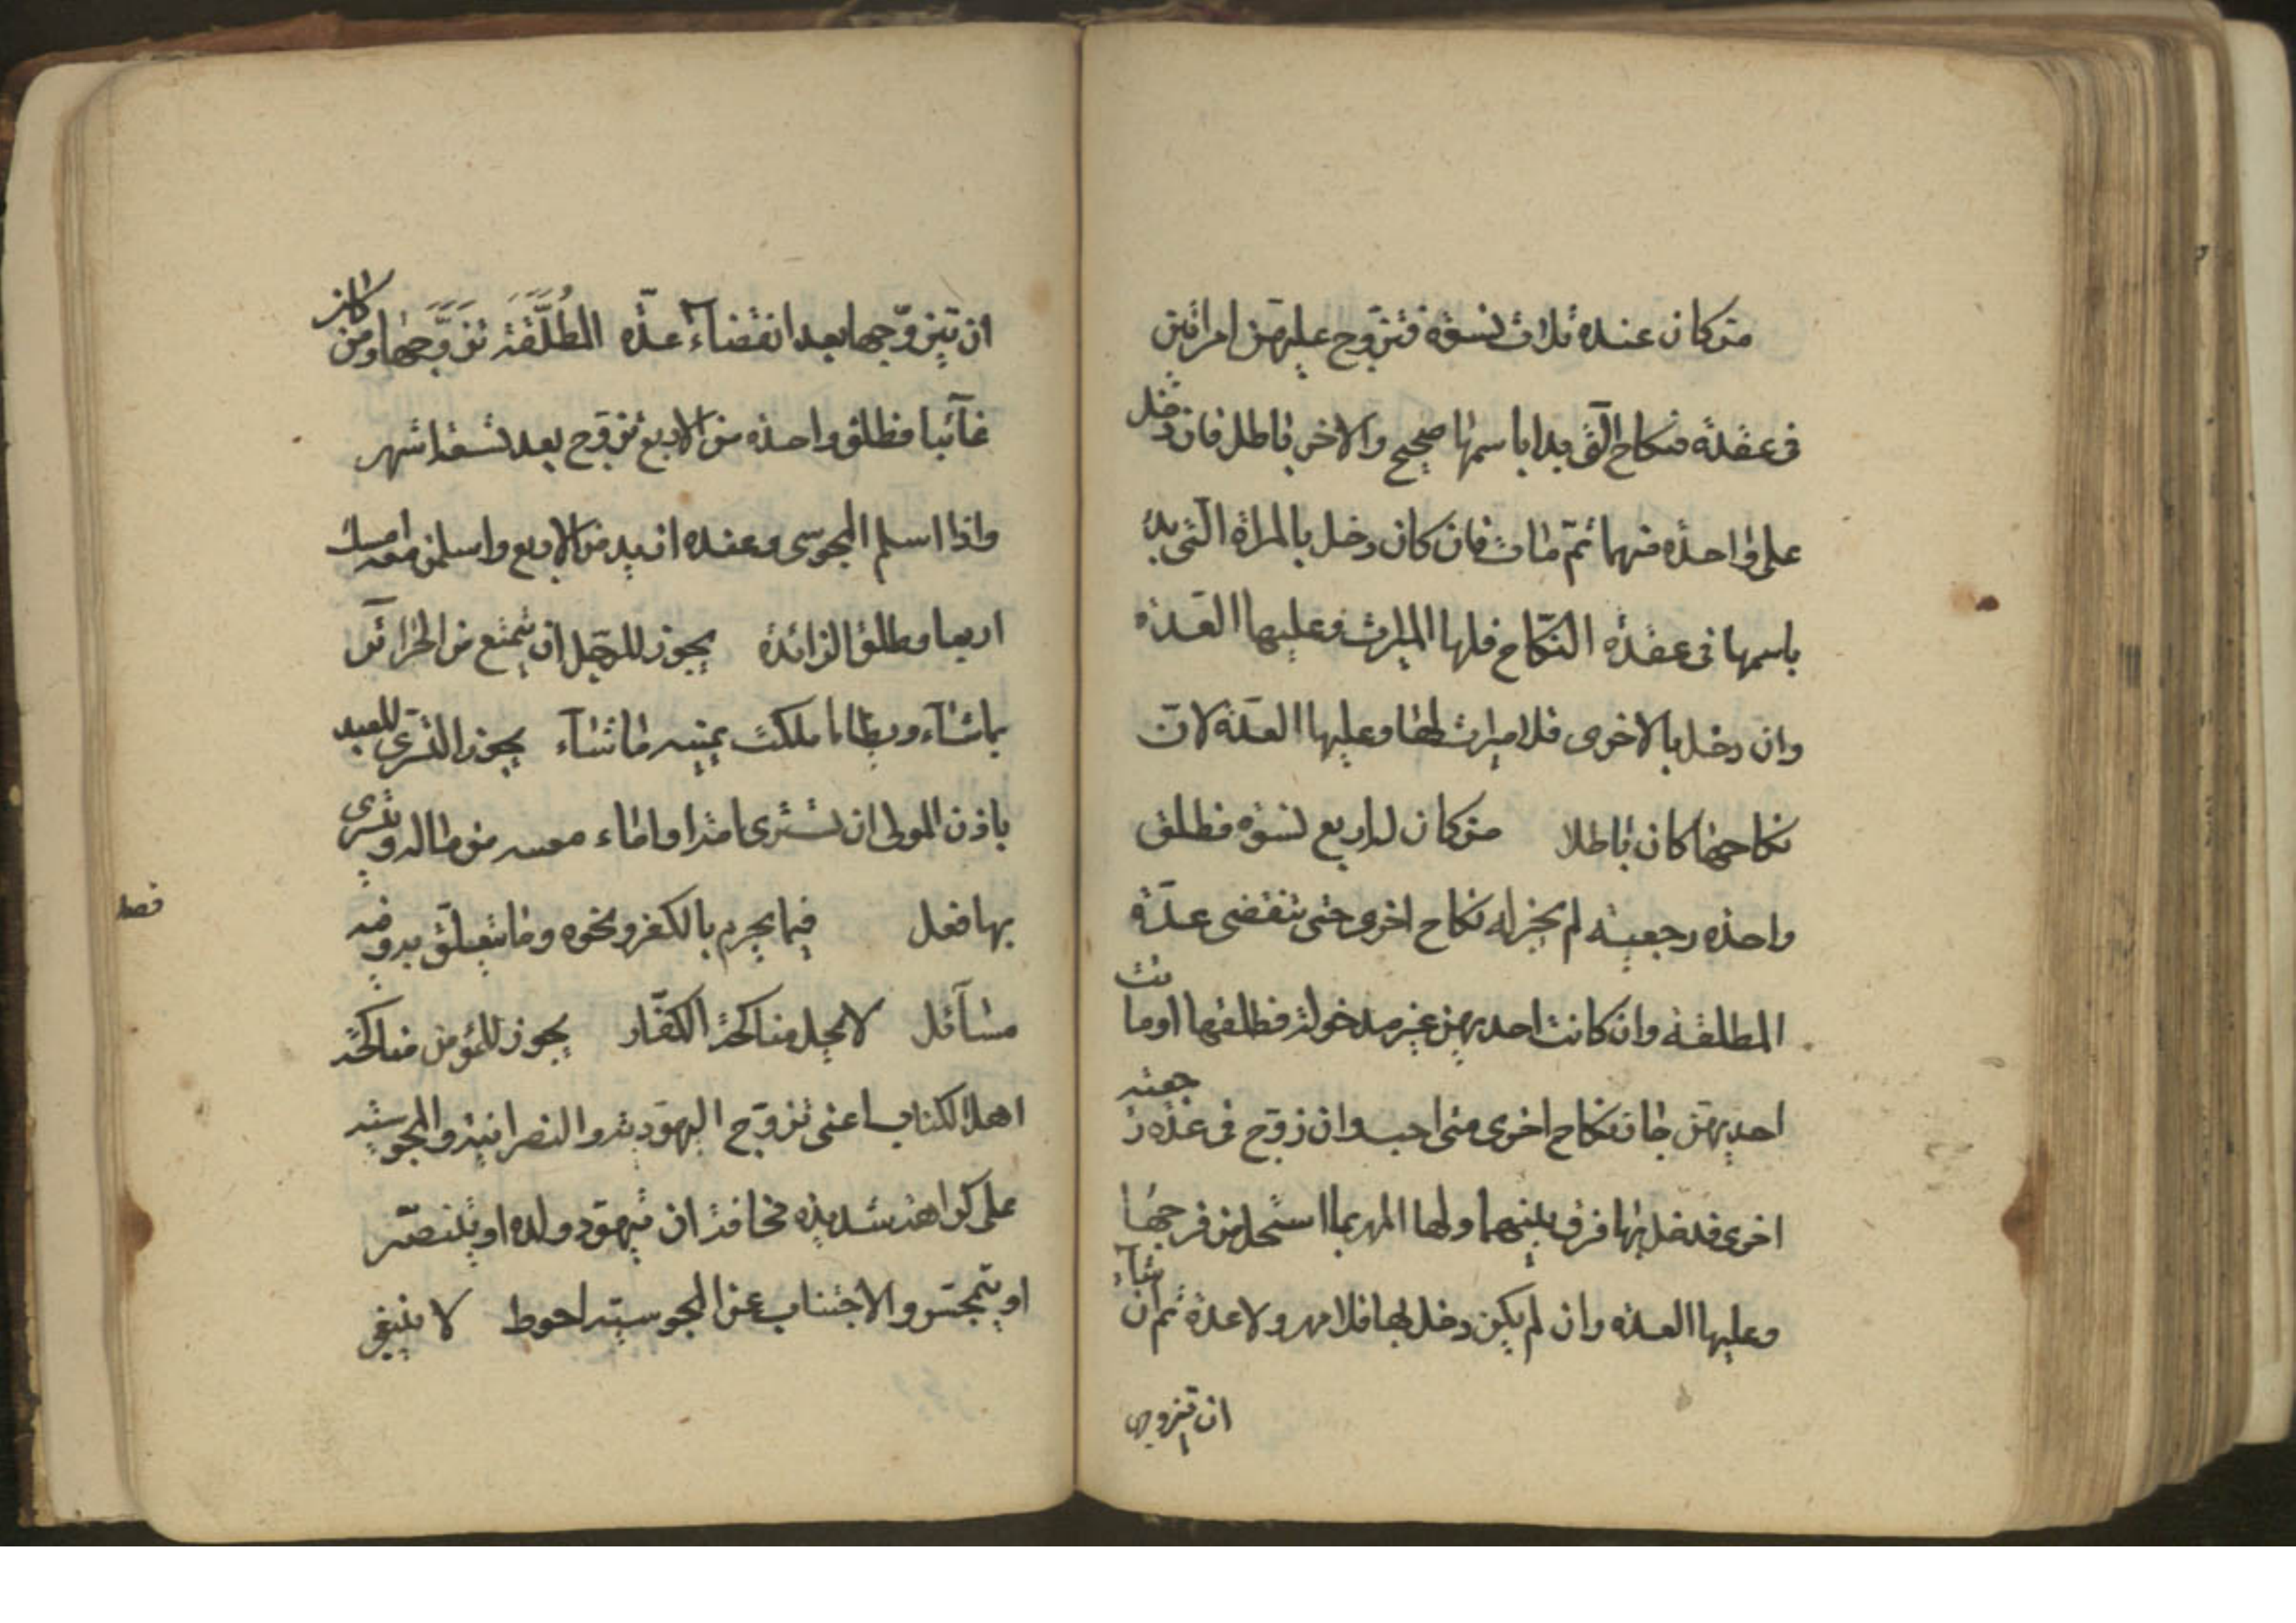 من كان عنده ثلاث نسوة فتزوج عليهن امراتين
فى عقدة فنكاح الّتى بدا باسمها صحيح والاخرى باطل فان دخل
على واحدة منهما ثمّ مات فان كان دخل بالمراة الّتى بدا
باسمها فى عقدة النكاح فلها الميراث وعليها العدّة
وان دخل بالاخرى فلا ميراث لها وعليها العدّة لانّ
نكاحها كان باطلا من كان له اربع نسوة فطلق
واحدة رجعية لم يجز له نكاح اخرى حتى تنقضى عدّة
المطلقة وان كانت احديهن غير مدخولة فطلقها او ماتت
احديهنّ جاز نكاح اخرى متى احب وان زوّج فى عدّة رجعية
اخرى فدخل بها فرق بينهما ولها المهر بما استحل من فرجها
وعليها العدة وان لم يكن دخل بها فلا مهر ولا عدة ثم ان شآء
ان يتزوجها
ان يتزوّجها بعد انقضآء عدّة المُطَلَّقَة تَزَوَّجَها ومن كان
غآئبا فطلق واحدة من الاربع تزوّج بعد تسعة اشهر
واذا اسلم المجوسى وعنده ازيد من الاربع واسلمن معه امسك
اربعا وطلق الزائدة يجوز للرّجل ان يتمتع من الحرائر
بما شآء ويطا ما ملكت يمينه ما شآء يجوز التسرّى للعبد
باذن المولى ان تشترى امة او اماء من ماله ويتسرى
بها فعل فيما يحرم بالكفر ونحوه وما يتعلّق به وفيه
فصل
مسآئل لا يحل مناكحة الكفّار يجوز للمؤمن مناكحة
اهل الكتاب اعنى تزوّج اليهودية والنصرانية والمجوسية
على كراهة شديدة مخافة ان يهود ولده او ينصّر
او يتمجّس والاجتناب عن المجوسيّة احوط لا ينبغى